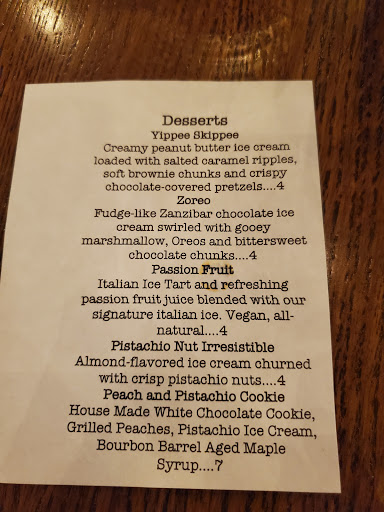 Desserts
Yippee Skippee
Creamy peanut butter ice cream
loaded with salted caramel ripples,
soft brownie chunks and crispy
chocolate-covered pretzels....4
Zoreo
Fudge-like Zanzibar chocolate ice
cream swirled with gooey
marshmallow, Oreos and bittersweet
chocolate chunks....4
Passion Fruit
Italian Ice Tart and refreshing
passion fruit juice blended with our
signature italian ice. Vegan, all-
natural....4
Pistachio Nut Irresistible
Almond-flavored ice cream churned
with crisp pistachio nuts....4
Peach and Pistachio Cookie
House Made White Chocolate Cookie,
Grilled Peaches, Pistachio Ice Cream,
Bourbon Barrel Aged Maple
Syrup....7